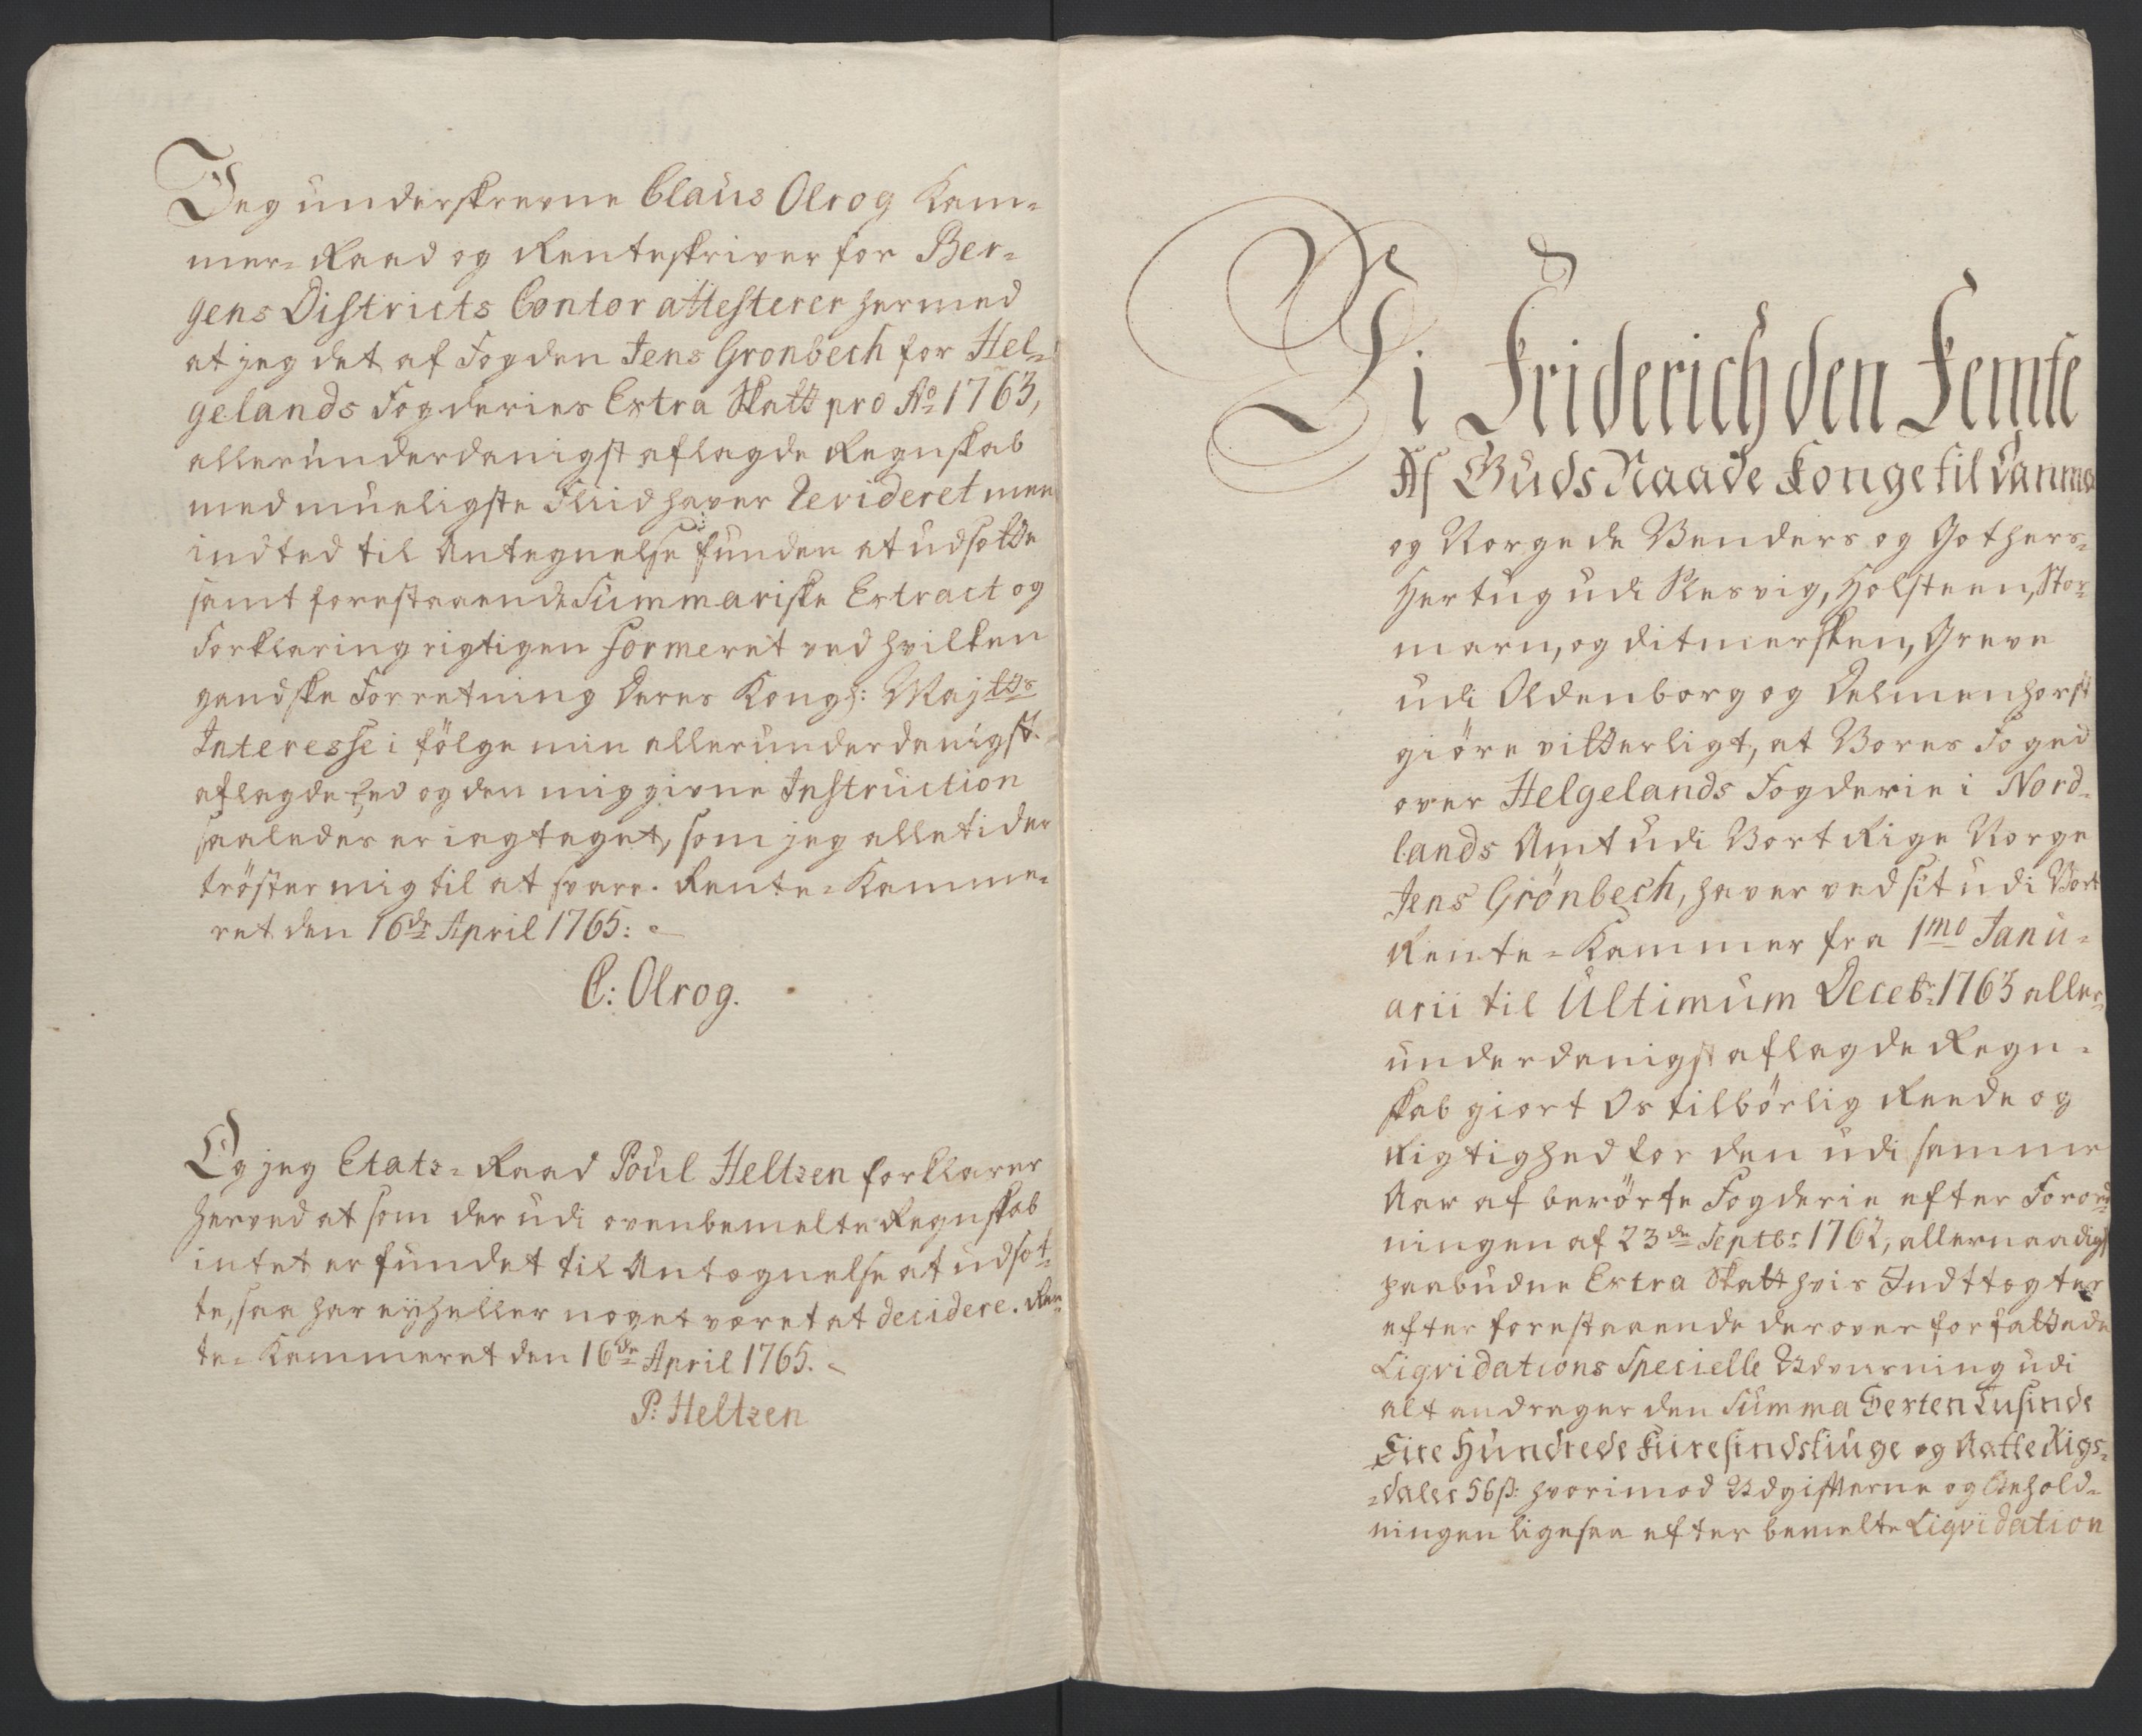 Jeg underskrevne Claus Olrog Kam=
mer=Raad og Renteskriver for Ber=
gens Districts Contor attesterer hermed
at jeg det af Fogden Jens Gronbech for Hel=
gelands Fogderies Extra Skatt pro Ao 1763,
allerunderdanigst aflagde Regnskab
med mueligste Fliid haver Revideret men
indted til Antegnelse funden at udsætte
samt forestaaende Summariske Extract og
Forklaring rigtigen formeret ved hvilken
gandske Forretning Deres Kongl: Majtts
Interesse i følge min allerunderdanigst
aflagde Eed og den mig givne Instruction
saaledes er iagtaget, som jeg alletider
trøster mig til at svare. Rente=Kamme=
ret den 16de April 1765.
C: Olrog.
Og jeg Etats=Raad Poul Heltzen forklarer
herved at som der udi ovenbemelte Regnskab
intet er fundet til Antegnelse at udsæt=
te, saa har eÿ heller noget været at decidere. Ren=
te=Kammeret den 16de April 1765.
P: Heltzen
Vi Friderich den Femte
Af Guds Naade Konge til Danma
og Norge de Venders og Gothers=
Hertug udi Slesvig, Holsteen, Stor=
marn, og Ditmersken, Greve
udi Oldenborg og Delmenhorst
giøre vitterligt, at Vores Foged
over Helgelands Fogderie i Nord=
lands Amt udi Vort Rige Norge
Jens Grönbech, haver ved sit udi Vort
Rente=Kammer fra 1mo Janu=
arii til Ultimum Decebr: 1763 aller=
underdanigst aflagde Regn=
skab giort Os tilbørlig Reede og
Rigtighed for den udi samme
Aar af berørte Fogderie efter Forord=
ningen af 23de Septbr: 1762, allernaadigst
paabudne Extra Skatt hvis Indtægter
efter forestaaende derover forfattede
Liqvidations Specielle Udviisning udi
alt andrager den Summa Sexten Tusinde
Fire Hundrede Fiiresindstiuge og Aatte Rigs=
=daler 56 ß: hvorimod Udgifterne og Behold=
ningen ligesaa efter bemelte Liqvidation